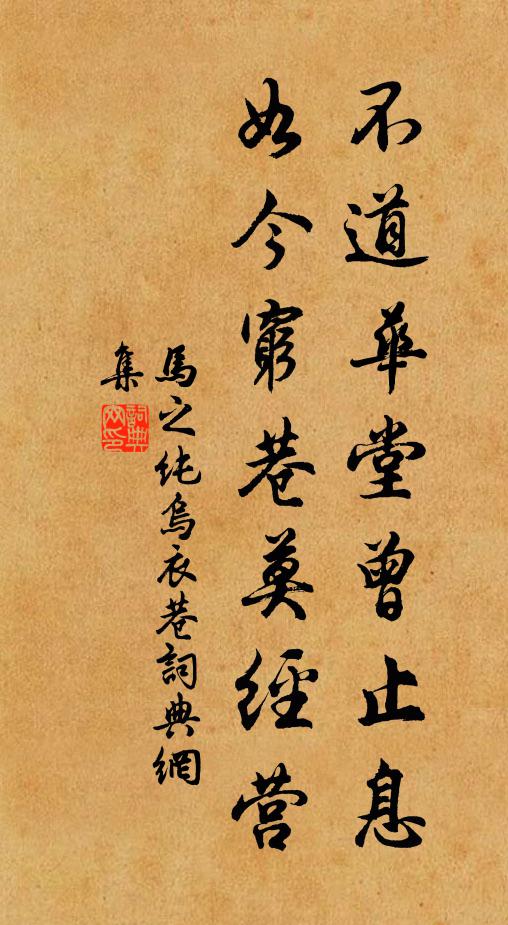 不道華堂曾止息
如今窮巷莫經营
馬之純烏衣巷詞典網
集
詞典
网印